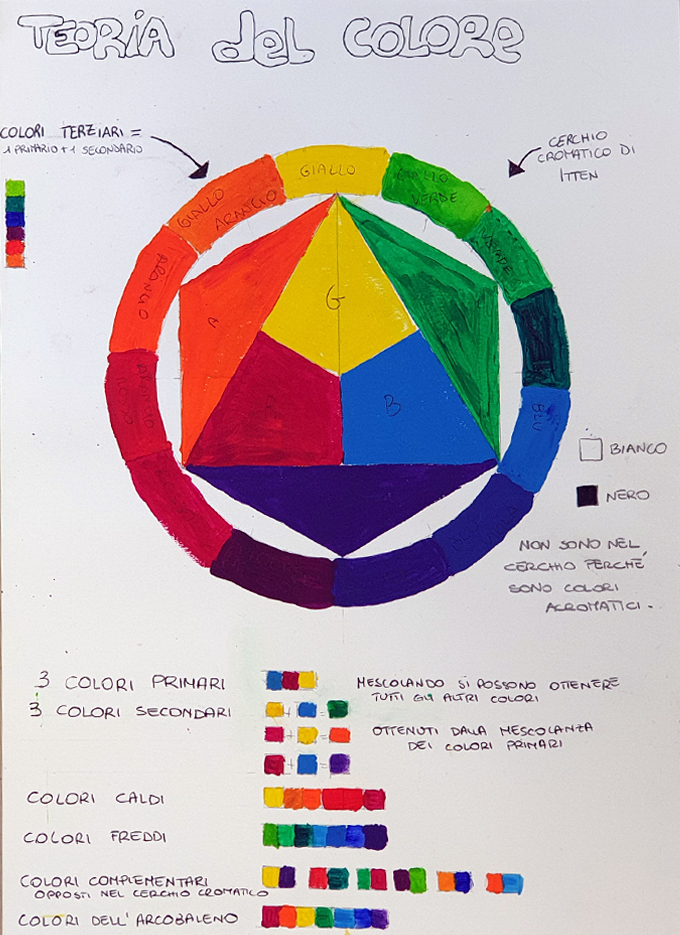 TEORIA del COLORE
COLORI TERZIARI =
1 PRIMARIO + 1 SECONDARIO
CERCHIO
CROMATICO DI
ITTEN
GIALLO
GIALLO
VERDE
GIALLO
ARANCIO
VERDE
ARANCIO
G
A
B
BLU
BIANCO
NERO
NON SONO NEL
CERCHIO PERCHÉ
SONO COLORI
ACROMATICI.
3 COLORI PRIMARI
MESCOLANDO SI POSSONO OTTENERE
TUTTI GLI ALTRI COLORI
3 COLORI SECONDARI
+ =
+ =
OTTENUTI DALLA MESCOLANZA
DEI COLORI PRIMARI
+ =
COLORI CALDI
COLORI FREDDI
COLORI COMPLEMENTARI
OPPOSTI NEL CERCHIO CROMATICO
COLORI DELL'ARCOBALENO